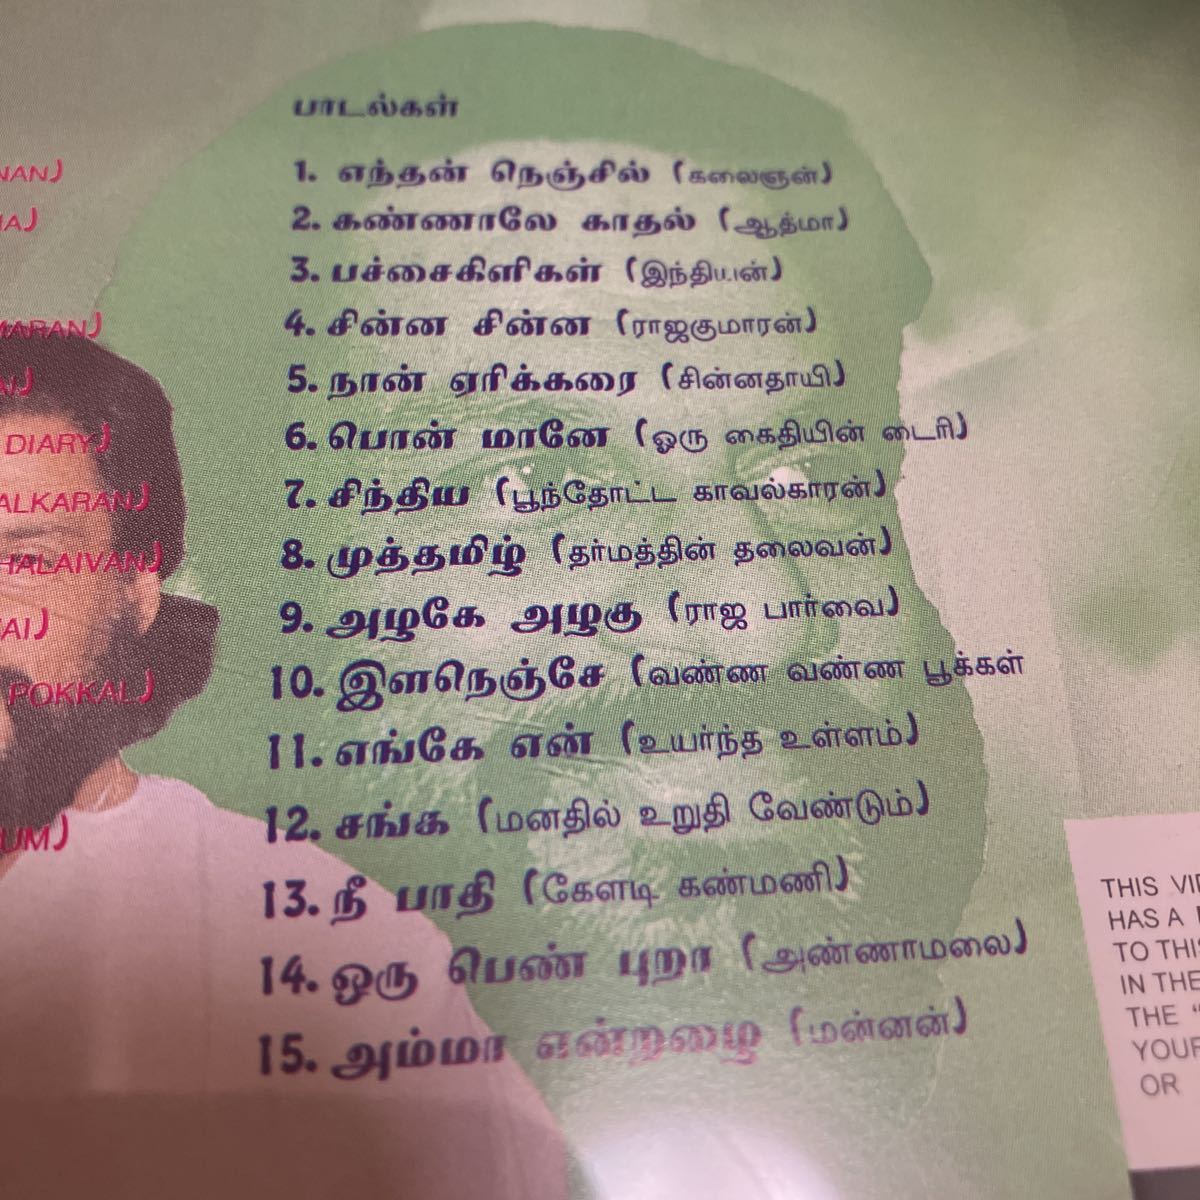 பாடல்கள்
1. எந்தன் நெஞ்சில் (கலைஞன்)
2. கண்ணாலே காதல் (ஆத்மா)
3. பச்சைகிளிகள் (இந்தியன்)
4. சின்ன சின்ன (ராஜகுமாரன்)
5. நான் ஏரிக்கரை (சின்னதாயி)
6. பொன் மானே (ஓரு கைதியின் டைரி)
7. சிந்திய (பூந்தோட்ட காவல்காரன்)
8. முத்தமிழ் (தர்மத்தின் தலைவன்)
9. அழகே அழகு (ராஜ பார்வை)
10. இளநெஞ்சே (வண்ண வண்ண பூக்கள்
11. எங்கே என் (உயர்ந்த உள்ளம்)
12. சங்க (மனதில் உறுதி வேண்டும்)
13. நீ பாதி (கேளடி கண்மணி)
14. ஒரு பெண் புறா (அண்ணாமலை)
15. அம்மா என்றழை (மன்னன்)
NAN)
HA)
MARAN)
AI)
DIARY)
ALKARAN)
HALAIVAN)
AI)
POKKAL)
UM)
THIS VI
HAS A
TO THI
IN THE
THE "
YOUR
OR